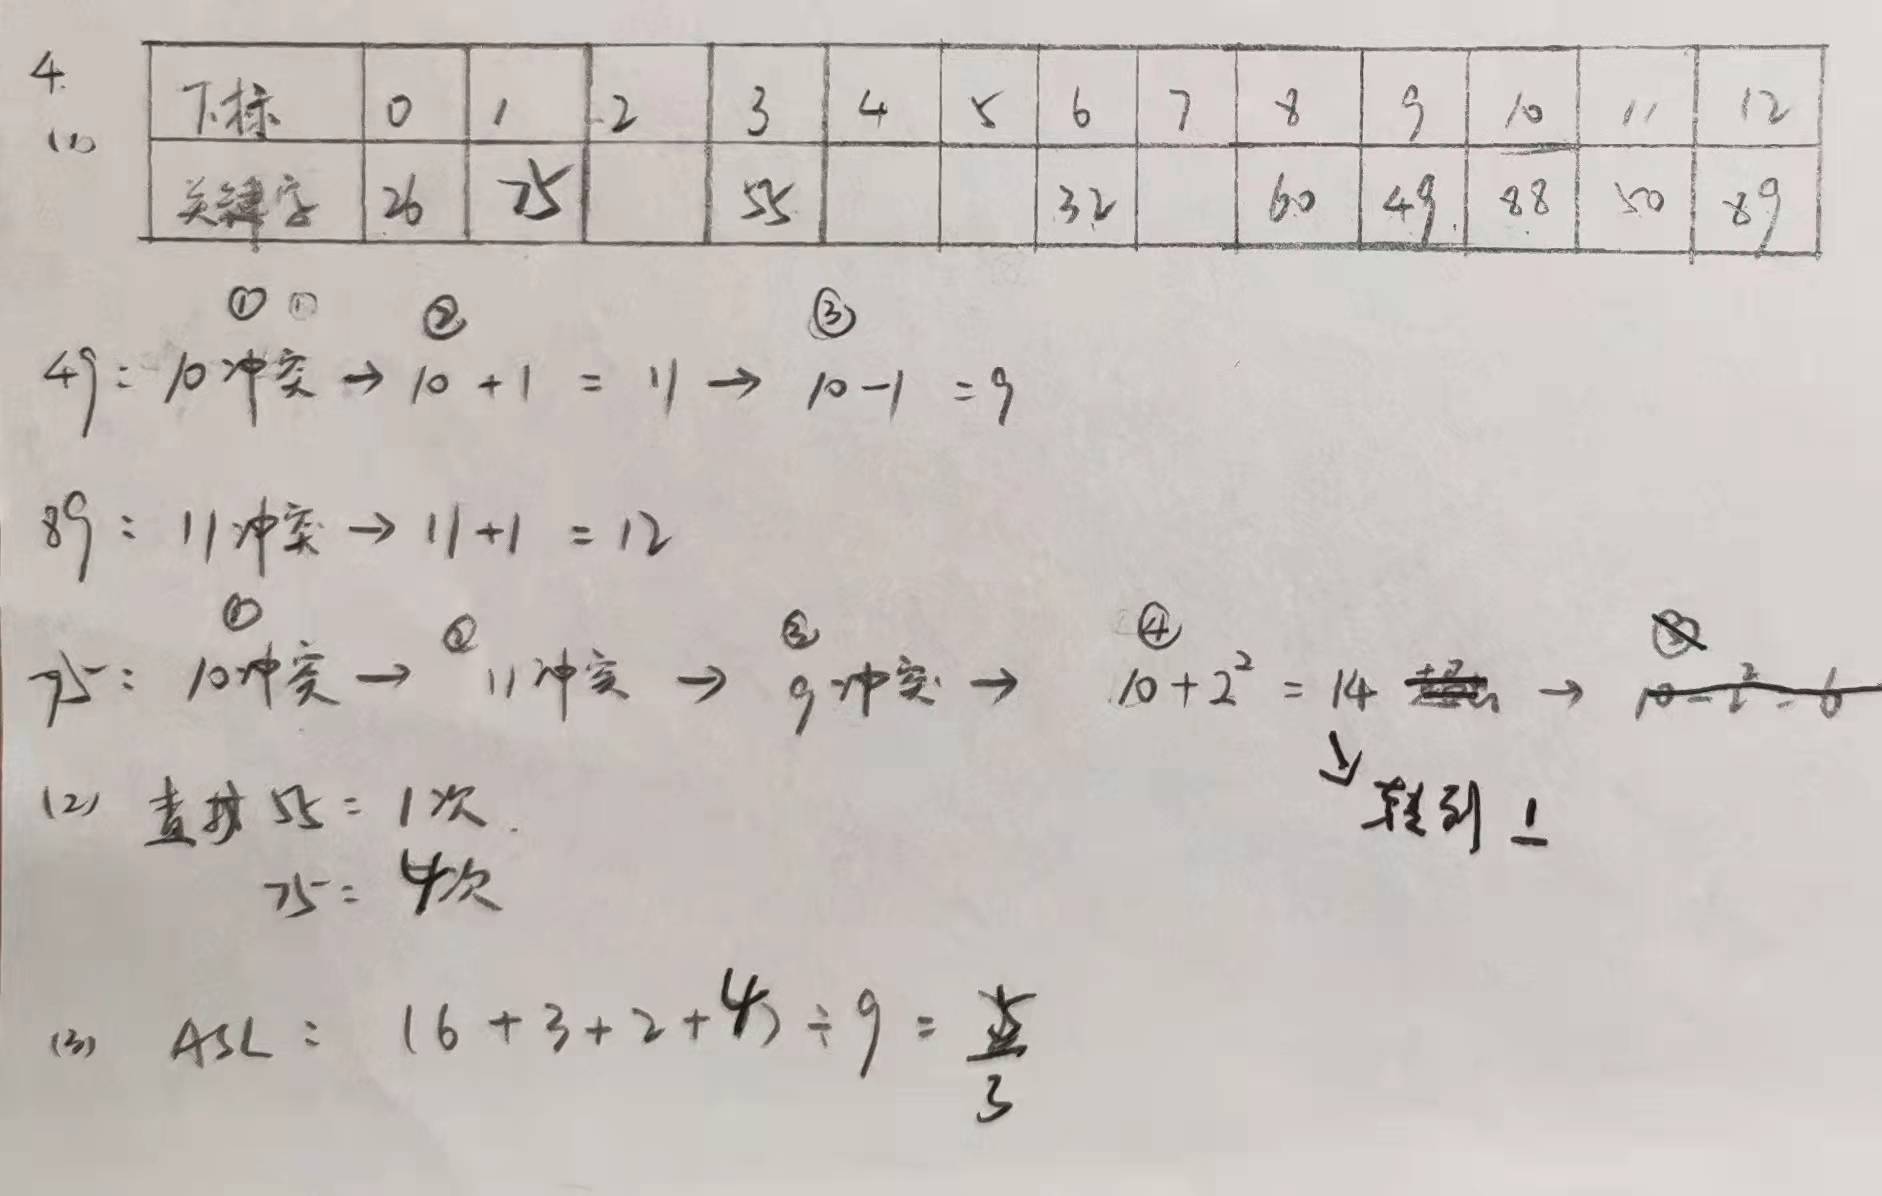 4.
(1)
下标 0 1 2 3 4 5 6 7 8 9 10 11 12
关键字 26 75 55 32 60 49 88 50 89
① ① ② ③
49: 10冲突 → 10 + 1 = 11 → 10 - 1 = 9
89: 11冲突 → 11 + 1 = 12
① ② ③ ④ ⑤
75: 10冲突 → 11冲突 → 9冲突 → 10 + 2² = 14 → 10 - 2² = 6
↘ 转到 1
(2) 查找 55 = 1次.
75 = 4次
(3) ASL: (6 + 3 + 2 + 4) ÷ 9 = 5/3